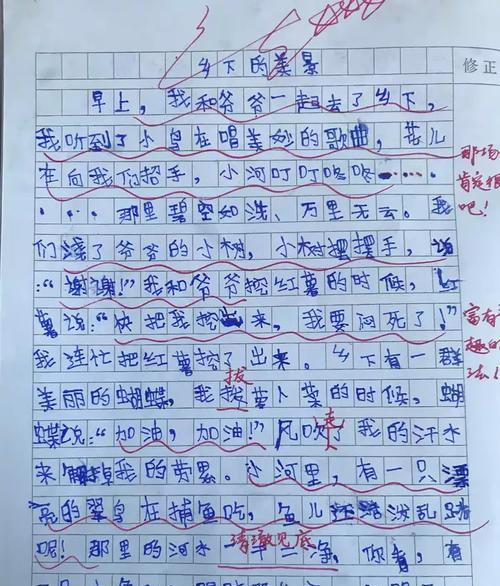 乡下的美景
修正
早上，我和爷爷一起去了乡下，
我听到了小鸟在唱美妙的歌曲，花儿
在向我们招手，小河叮叮咚咚……
那里碧空如洗、万里无云。我
们浇了爷爷的小树，小树摆摆手，说
：“谢谢！”我和爷爷挖红薯的时候，红
薯说：“快把我挖出来，我要闷死了！”
我连忙把红薯挖了出来。乡下有一群
拔
美丽的蝴蝶，我拨萝卜菜的时候，蝴
蝶说：“加油，加油！”风吹走了我的汗水
来解掉我的劳累。小河里，有一只漂
亮的翠鸟在捕鱼吃，鱼儿还活泼乱跳
清澈见底
呢！那里的河水一干二净。你看，有
那场
肯定很
吧！
富有
趣的
法！